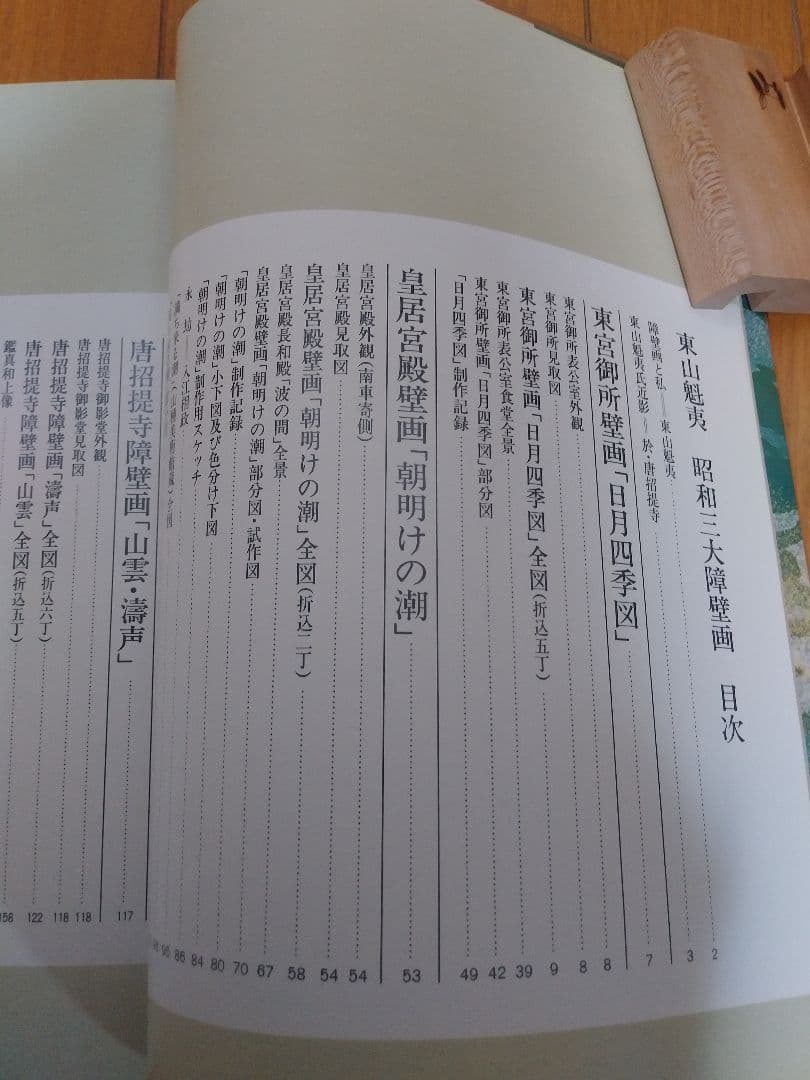 東山魁夷 昭和三大障壁画 目次
障壁画と私 ── 東山魁夷 2
東山魁夷氏近影 ── 於・唐招提寺 3
東宮御所壁画「日月四季図」 7
東宮御所表公室外観 8
東宮御所見取図 8
東宮御所表公室食堂全景 9
東宮御所壁画「日月四季図」全図(折込五丁) 39
東宮御所壁画「日月四季図」部分図 42
「日月四季図」制作記録 49
皇居宮殿壁画「朝明けの潮」 53
皇居宮殿外観(南車寄側) 54
皇居宮殿見取図 54
皇居宮殿壁画「朝明けの潮」全図(折込二丁) 58
皇居宮殿長和殿「波の間」全景 67
皇居宮殿壁画「朝明けの潮」部分図・試作図 70
「朝明けの潮」制作記録 80
「朝明けの潮」小下図及び色分け下図 84
「朝明けの潮」制作用スケッチ 86
入江相政
唐招提寺障壁画「山雲・濤声」 117
唐招提寺御影堂外観 118
唐招提寺御影堂見取図 118
唐招提寺障壁画「濤声」全図(折込六丁) 122
唐招提寺障壁画「山雲」全図(折込五丁) 158
鑑真和上像